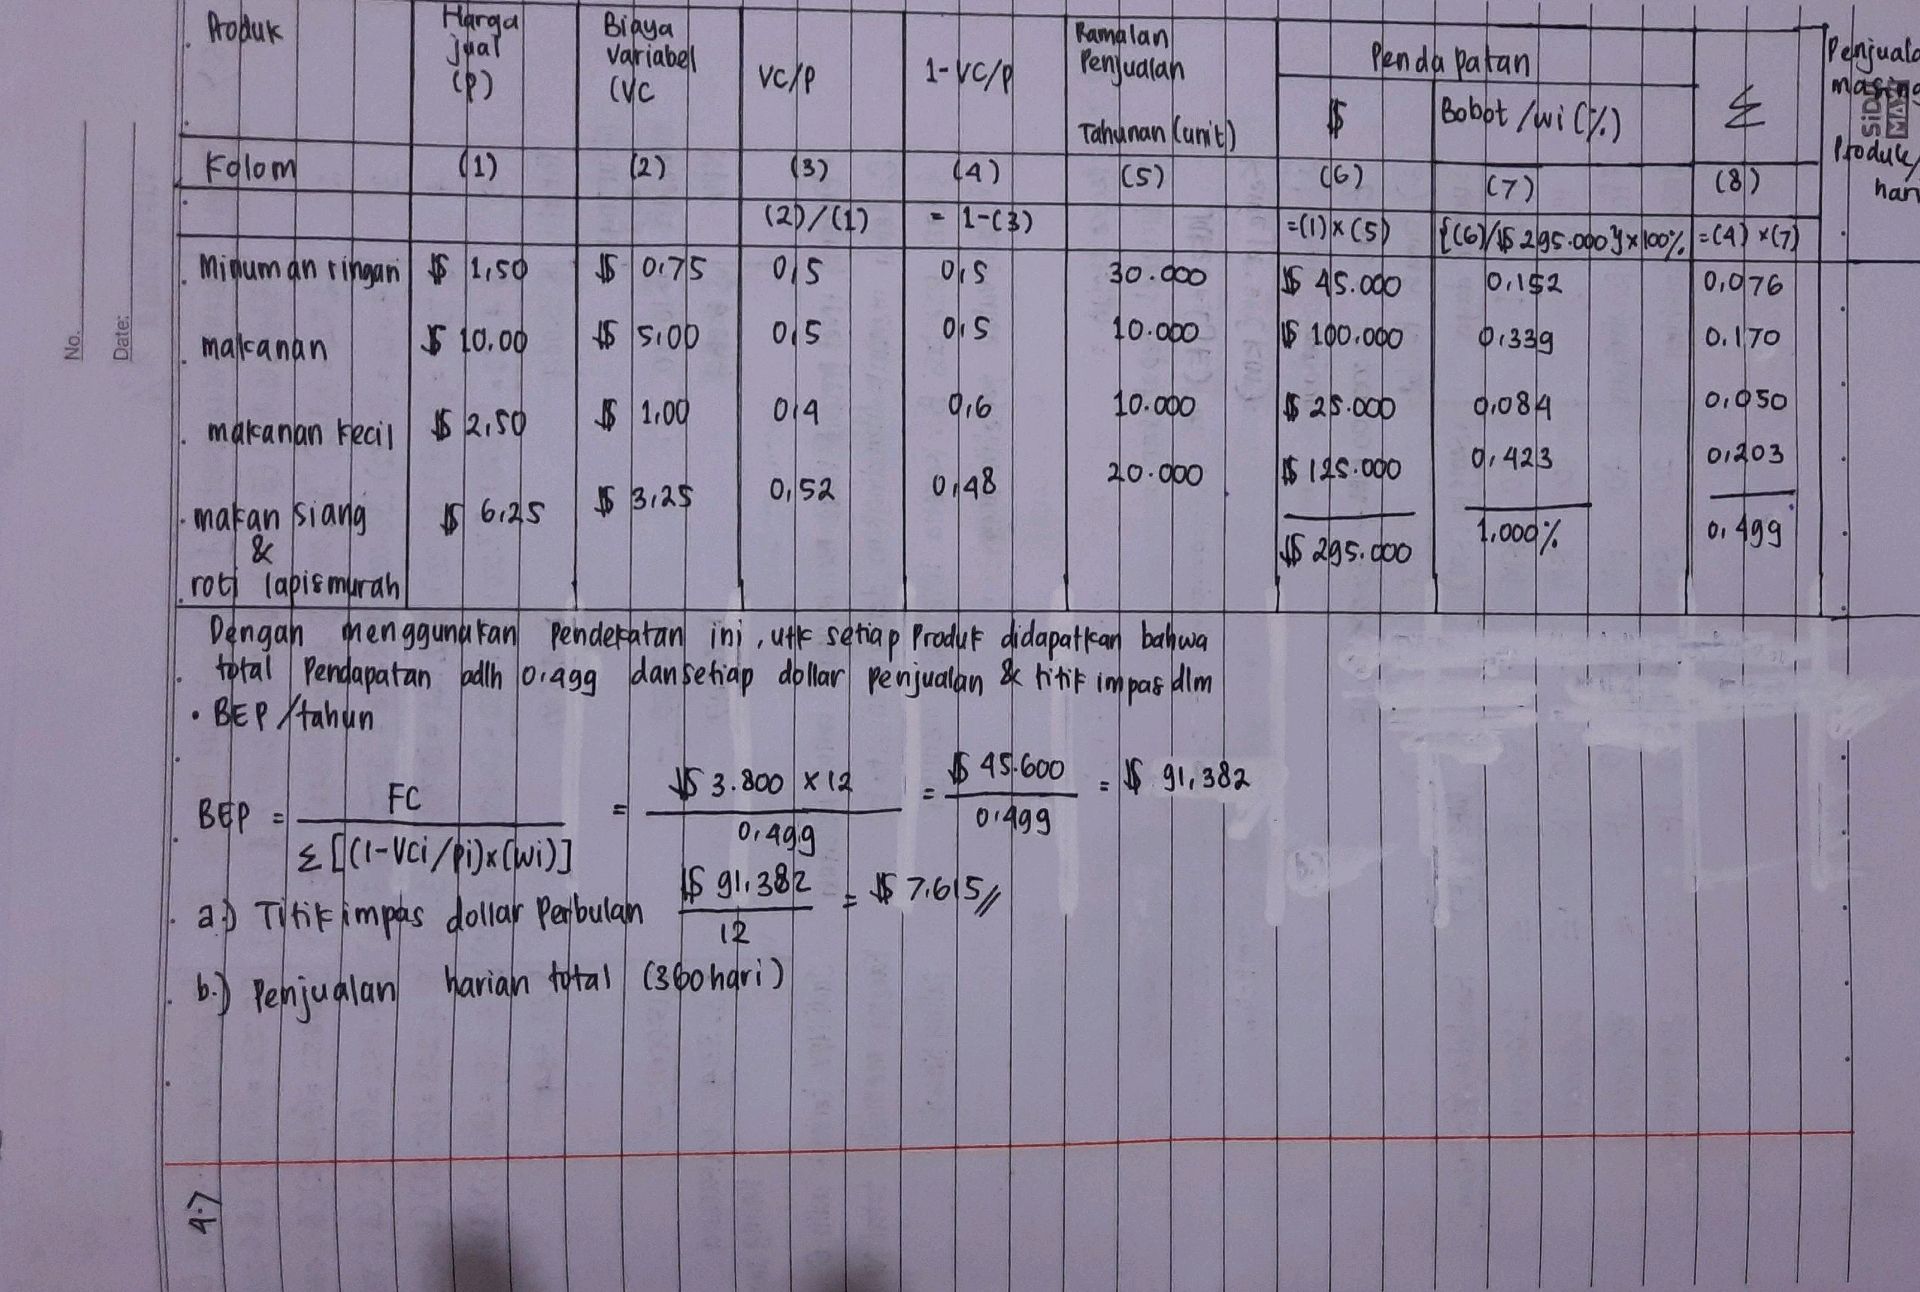 No.
Date:
Produk
Harga jual (P)
Biaya variabel (VC
VC/P
1-VC/P
Ramalan Penjualan Tahunan (unit)
Pendapatan
$
Bobot /wi (%)
Σ
Penjuala
masing
Produk/
hari
SiDU
Kolom (1) (2) (3) (4) (5) (6) (7) (8)
(2)/(1) = 1-(3) =(1)×(5) {(6)/$ 295.000}×100% =(4)×(7)
Minuman ringan $ 1,50 $ 0.75 0,5 0,5 30.000 $ 45.000 0,152 0,076
makanan $ 10.00 $ 5,00 0,5 0,5 10.000 $ 100.000 0,339 0.170
makanan kecil $ 2,50 $ 1,00 0,4 0,6 10.000 $ 25.000 0,084 0,050
makan siang $ 6,25 $ 3,25 0,52 0,48 20.000 $ 125.000 0,423 0,203
&
roti lapis murah
$ 295.000 1.000% 0,499
Dengan menggunakan pendekatan ini, utk setiap Produk didapatkan bahwa
total Pendapatan adlh 0,499 dan setiap dollar penjualan & titik impas dlm
• BEP/tahun
BEP = FC / Σ [(1-Vci/pi)x(wi)] = $ 3.800 × 12 / 0,499 = $ 45.600 / 0,499 = $ 91,382
a.) Titik impas dollar Perbulan $ 91,382 / 12 = $ 7.615//
b.) Penjualan harian total (360 hari)